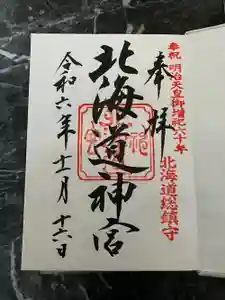 奉祝 明治天皇御増祀六十年
北海道総鎮守
奉拝
北海道神宮
令和六年十一月十六日